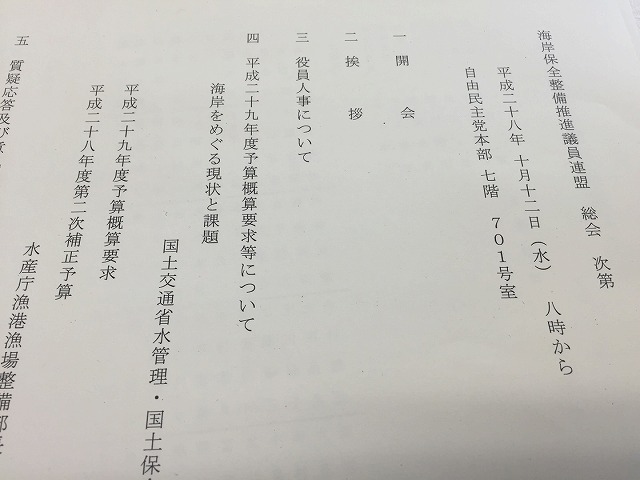 海岸保全整備推進議員連盟 総会 次第
平成二十八年 十月十二日（水） 八時から
自由民主党本部 七階 701号室
一 開 会
二 挨 拶
三 役員人事について
四 平成二十九年度予算概算要求等について
海岸をめぐる現状と課題
国土交通省水管理・国土保
平成二十九年度予算概算要求
平成二十八年度第二次補正予算
水産庁漁港漁場整備部長
五 質疑応答及び意